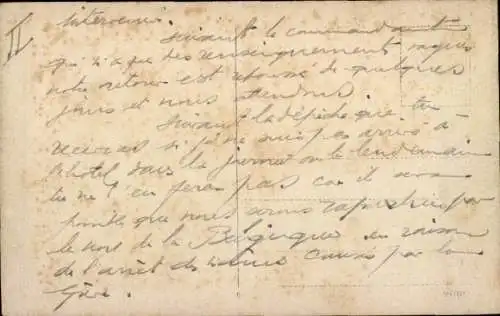 II
intervenir.
Suivant le commandant
qui n'a que des renseignements vagues
notre retour est repoussé de quelques
jours et nous attendons.
Suivant la dépêche que tu
recevras si je ne suis pas arrivé à
l'hotel dans la journée ou le lendemain
tu ne t'en feras pas car il sera
possible que nous serons rapatriés par
le nord de la Belgique en raison
de l'arrêt des trains causé par la
Grève.